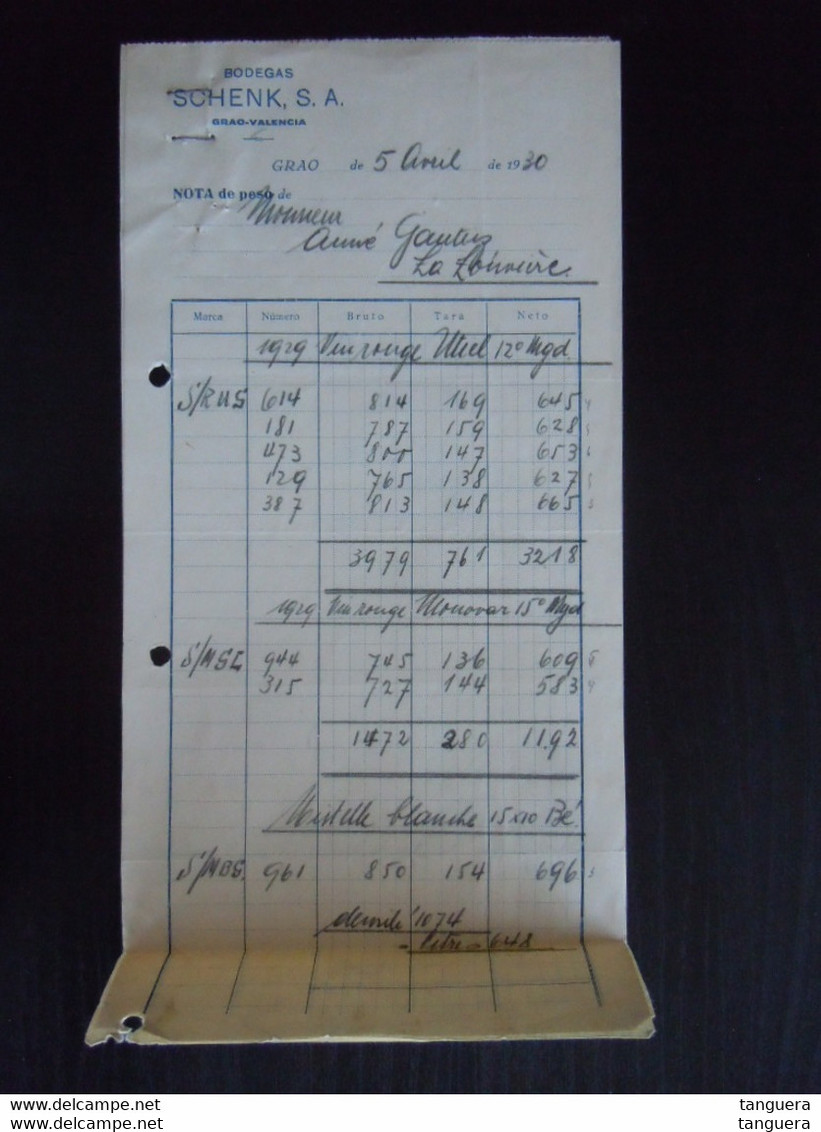 BODEGAS
SCHENK, S. A.
GRAO-VALENCIA
GRAO de 5 Avril de 1930
NOTA de peso de
Monsieur
Aimé
La Louvière
Marca Número Bruto Tara Neto
1929 Vin rouge Utiel 12° Mgd.
S/RUS 614 814 169 645
181 787 159 628
473 800 147 653
129 765 138 627
387 813 148 665
3979 761 3218
1929 Vin rouge Monovar 15° Mgd
944 745 136 609
315 727 144 583
1472 280 1192
Mistelle blanche 15x10 Bé.
961 850 154 696
densité 1074
Litre 648
tanguera
tanguera
tanguera
tanguera